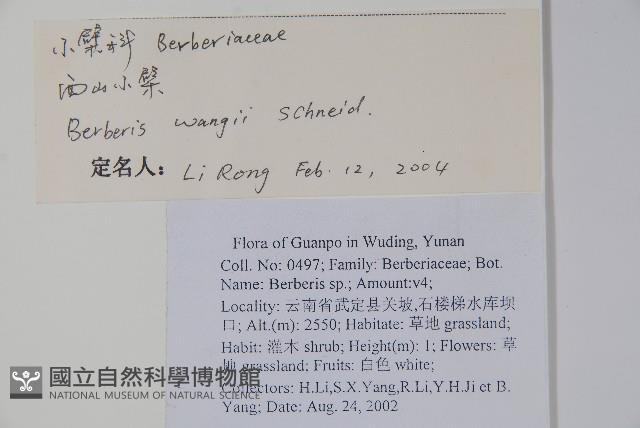 小檗科 Berberiaceae
西山小檗
Berberis wangii Schneid.
定名人: Li Rong Feb. 12, 2004
Flora of Guanpo in Wuding, Yunan
Coll. No: 0497; Family: Berberiaceae; Bot.
Name: Berberis sp.; Amount:v4;
Locality: 云南省武定县关坡,石楼梯水库坝
口; Alt.(m): 2550; Habitate: 草地 grassland;
Habit: 灌木 shrub; Height(m): 1; Flowers: 草
地 grassland; Fruits: 白色 white;
Collectors: H.Li,S.X.Yang,R.Li,Y.H.Ji et B.
Yang; Date: Aug. 24, 2002
國立自然科學博物館
NATIONAL MUSEUM OF NATURAL SCIENCE